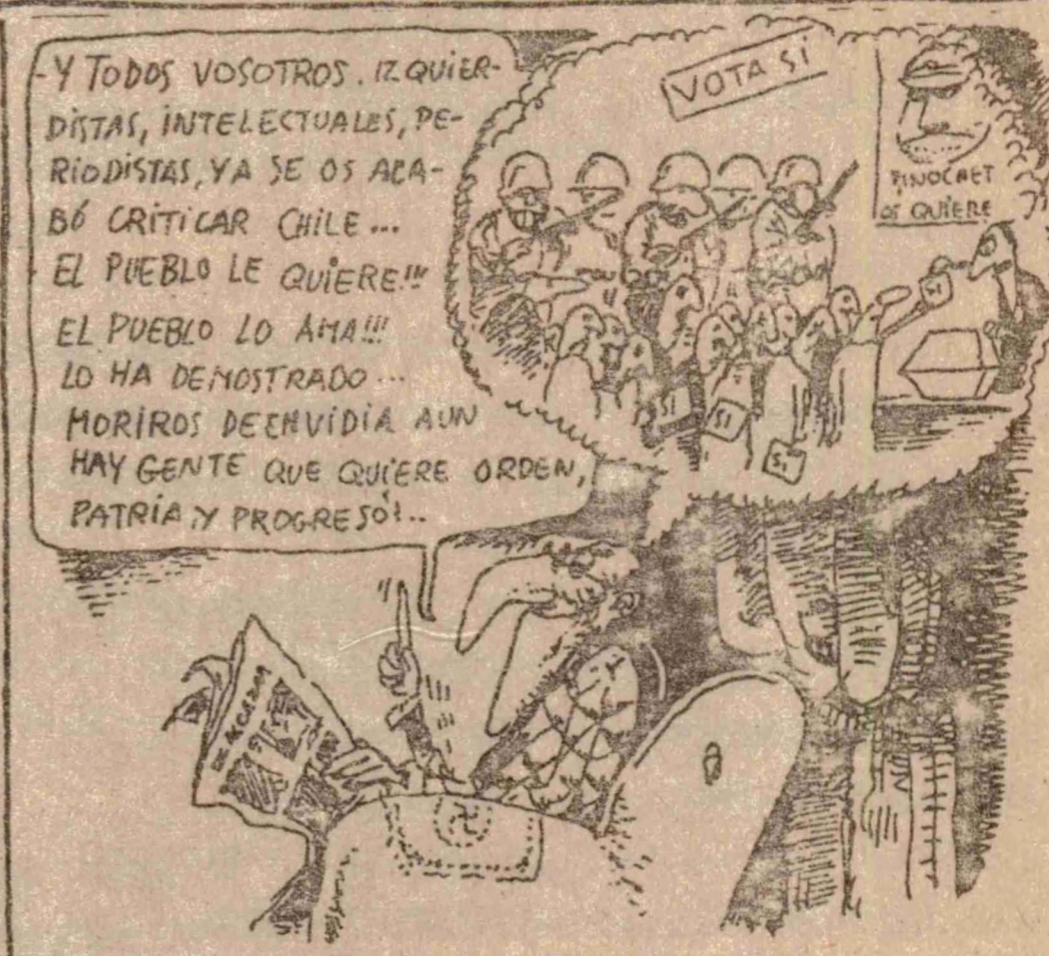 -Y TODOS VOSOTROS. IZQUIER-
DISTAS, INTELECTUALES, PE-
RIODISTAS, YA SE OS ACA-
BÓ CRITICAR CHILE...
EL PUEBLO LE QUIERE!!!
EL PUEBLO LO AMA!!!
LO HA DEMOSTRADO...
MORIROS DE ENVIDIA AUN
HAY GENTE QUE QUIERE ORDEN,
PATRIA, Y PROGRESO!..
VOTA SI
PINOCHET
OS QUIERE
SI
SI
SI
SI
EL ALCAZAR
SI